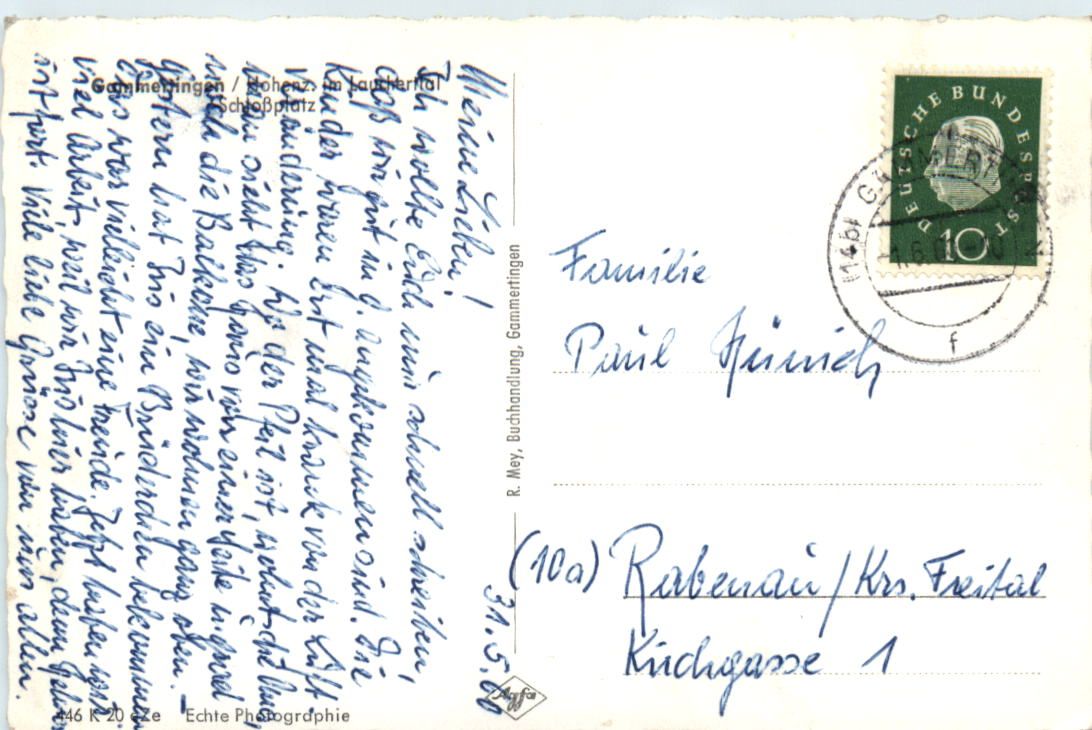 Gammertingen / Hohenz. im Lauchertal
Schloßplatz
31.5.60
Meine Lieben!
Ich wollte Euch nun schnell schreiben,
daß wir gut in G. angekommen sind. Die
Kinder waren erst mal krank von der Luft-
veränderung. Wo der Pfeil ist, wohnt die Oma,
man sieht das Haus von einer Seite u. grad
noch die Balkone, wir wohnen ganz oben. –
Gestern hat Iris ein Brüderchen bekommen
das war vielleicht eine Freude. Jetzt haben wir
viel Arbeit, weil wir Iris hier haben, denn
ist fort. Viele liebe Grüsse von uns allen.
446 K 20 aZe Echte Photographie
R. Mey, Buchhandlung, Gammertingen
Agfa
DEUTSCHE BUNDESPOST
10
(14b) GAMMERTINGEN
f
Familie
Paul Hünich
(10a) Rabenau / Krs. Freital
Kirchgasse 1